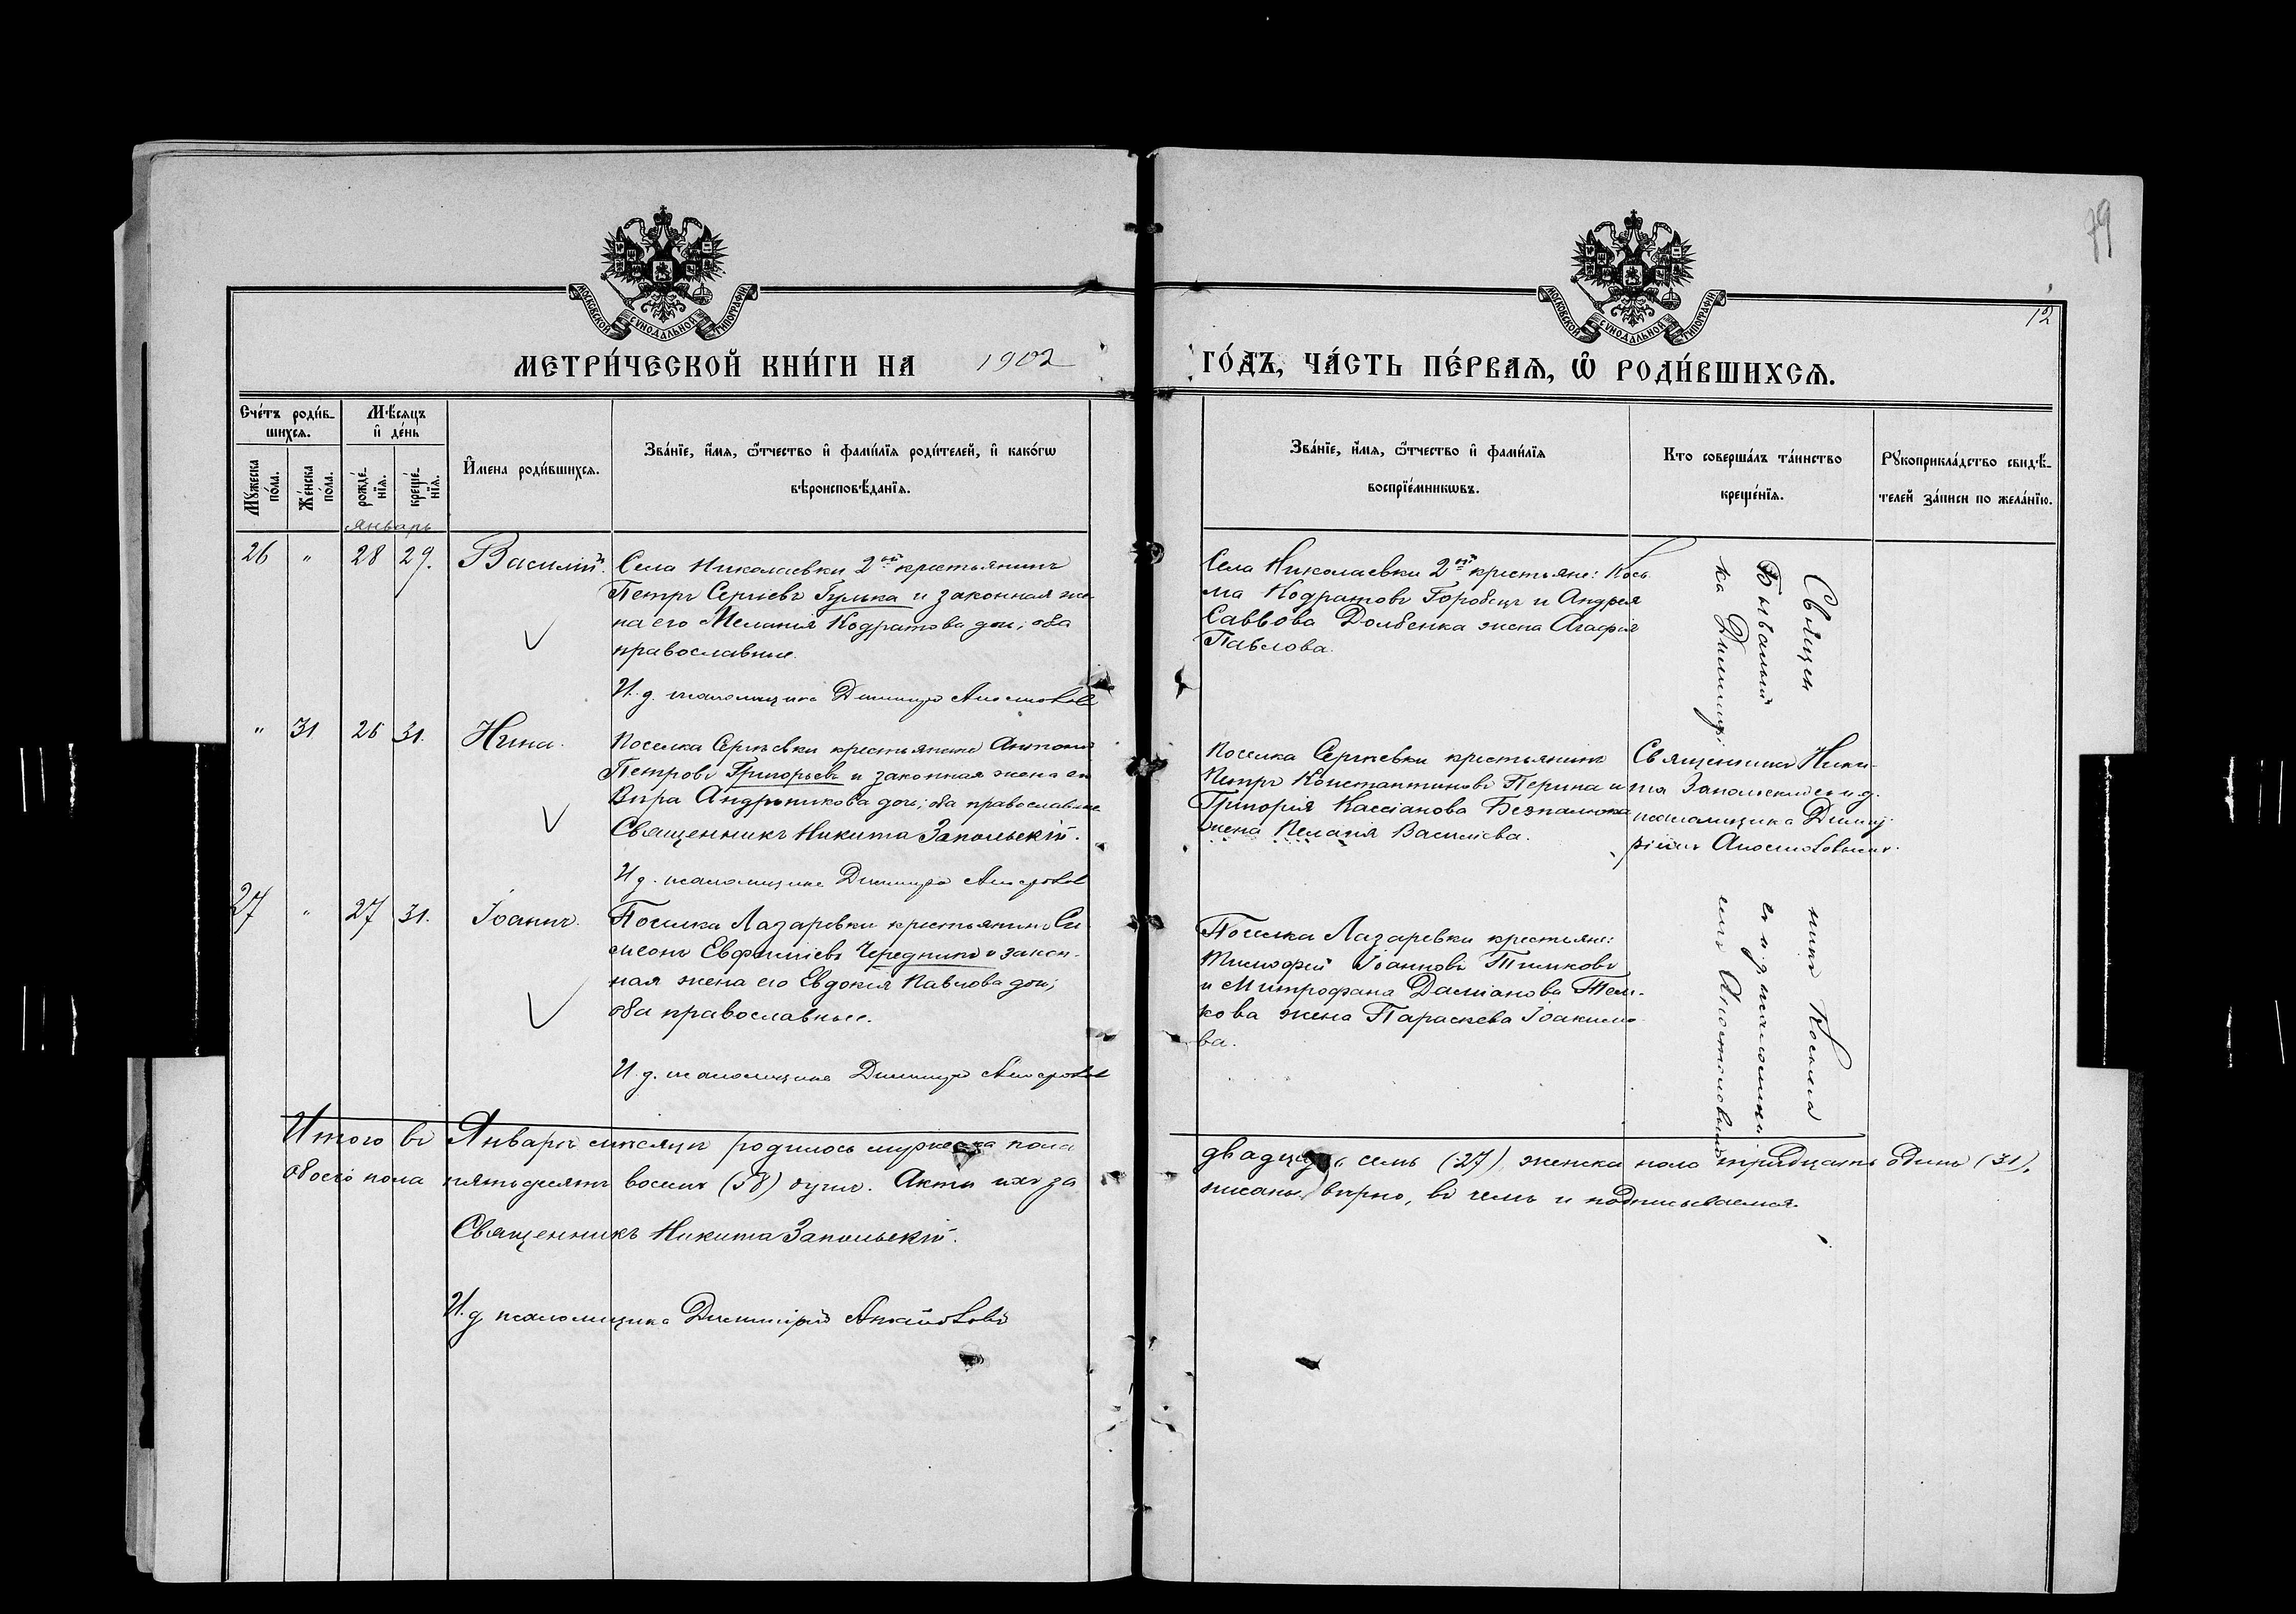 79
12
МОСКОВСКОЙ СУНОДАЛЬНОЙ ТИПОГРАФІИ
МОСКОВСКОЙ СУНОДАЛЬНОЙ ТИПОГРАФІИ
МЕТРИ́ЧЕСКОЙ КНИ́ГИ НА 1902 ГО́ДЪ, ЧА́СТЬ ПЕ́РВАѦ, Ѿ РОДИ́ВШИХСѦ.
Сче́тъ роди́в-
шихсѧ.
Мѣ́сѧцъ
и҆ де́нь
Мꙋ́жеска по́ла.
Же́нска по́ла.
рожде́-нїѧ.
креще́-нїѧ.
И҆мена роди́вшихсѧ.
Зва́нїе, и҆́мѧ, ѻ҆́тчество и҆ фами́лїѧ роди́телей, и҆ како́гѡ
вѣроисповѣ́данїѧ.
Зва́нїе, и҆́мѧ, ѻ҆́тчество и҆ фами́лїѧ
воспрїе́мникѡвъ.
Кто соверша́лъ та́инство
креще́нїѧ.
Рꙋкоприкла́дство свидѣ́-
телей за́писи по жела́нїю.
январь
26 " 28 29. Василій. Села Николаевки 2ой крестьянинъ
Петръ Сергіевъ Гулька и законная же-
на его Меланія Кодратова дочь; оба
православные.
И. д. псаломщика Димитрій
Села Николаевки 2ой крестьяне: Кось
ма Кодратовъ Горобецъ и Андрея
Саввова Долбенка жена Агафія
Павлова.
Священ
Бывалый
ка Димитрі
" 31 26 31. Нина. Поселка Сергѣевки крестьянинъ Антоній
Петровъ Григорьевъ и законная жена его
Вѣра Андроникова дочь; оба православные
Священникъ Никита Запольскій.
И д. псаломщика Димитрій
Поселка Сергѣевки крестьянинъ
Петръ Константиновъ Перина и
Григорія Кассіанова Безпалюка
жена Пелагія Василіева.
Священникъ Ники-
та Запольскій съ и. д.
псаломщика Димит
ріемъ
27 " 27 31. Іоаннъ. Поселка Лазаревки крестьянинъ Си
меонъ Евфиміевъ Чередникъ и закон-
ная жена его Евдокія Павлова дочь;
оба православные.
И. д. псаломщика Димитрій
Поселка Лазаревки крестьяне:
Тимофей Іоанновъ Тимковъ
и Митрофана Даміанова Тем-
кова жена Параскева Іоакимо
ва.
никъ Косьма
съ и. д. псаломщи
емъ
Итого въ Январѣ мѣсяцѣ родилось мужеска пола двадцать семь (27), женска пола тридцать одинъ (31),
обоего пола пятьдесятъ восемь (58) душъ. Акты ихъ за
писаны вѣрно, въ чемъ и подписываемся.
Священникъ Никита Запольскій.
И. д псаломщика Димитрій